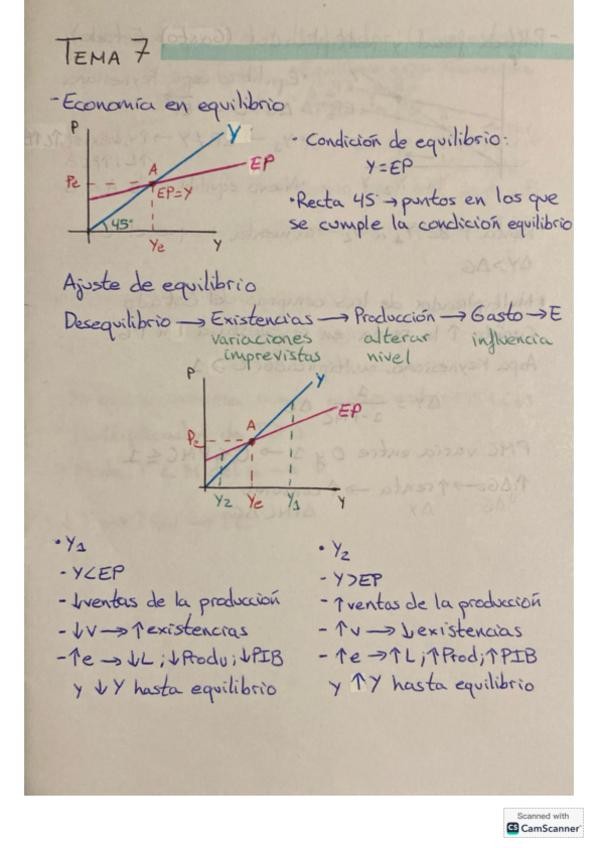 TEMA 7
- Economía en equilibrio
P
Y
EP
A
Pe
EP=Y
45°
Ye
Y
• Condición de equilibrio:
Y=EP
• Recta 45° → puntos en los que
se cumple la condición equilibrio
Ajuste de equilibrio
Desequilibrio → Existencias → Producción → Gasto → E
variaciones imprevistas
alterar nivel
influencia
P
Y
EP
A
Pe
Y2
Ye
Y1
Y
• Y1
- Y<EP
- ↓ventas de la producción
- ↓V → ↑existencias
- ↑e → ↓L ; ↓Produ; ↓PIB
y ↓ Y hasta equilibrio
• Y2
- Y>EP
- ↑ventas de la producción
- ↑v → ↓existencias
- ↑e → ↑L ; ↑Prod; ↑PIB
y ↑Y hasta equilibrio
Scanned with
CS CamScanner